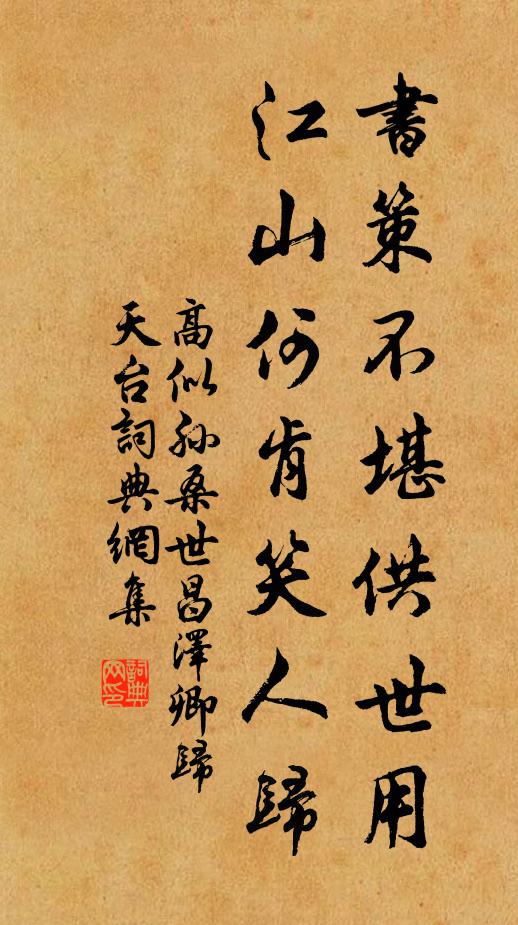 書策不堪供世用
江山何肯笑人歸
高似孙桑世昌澤卿歸
天台詞典網集
詞典网印